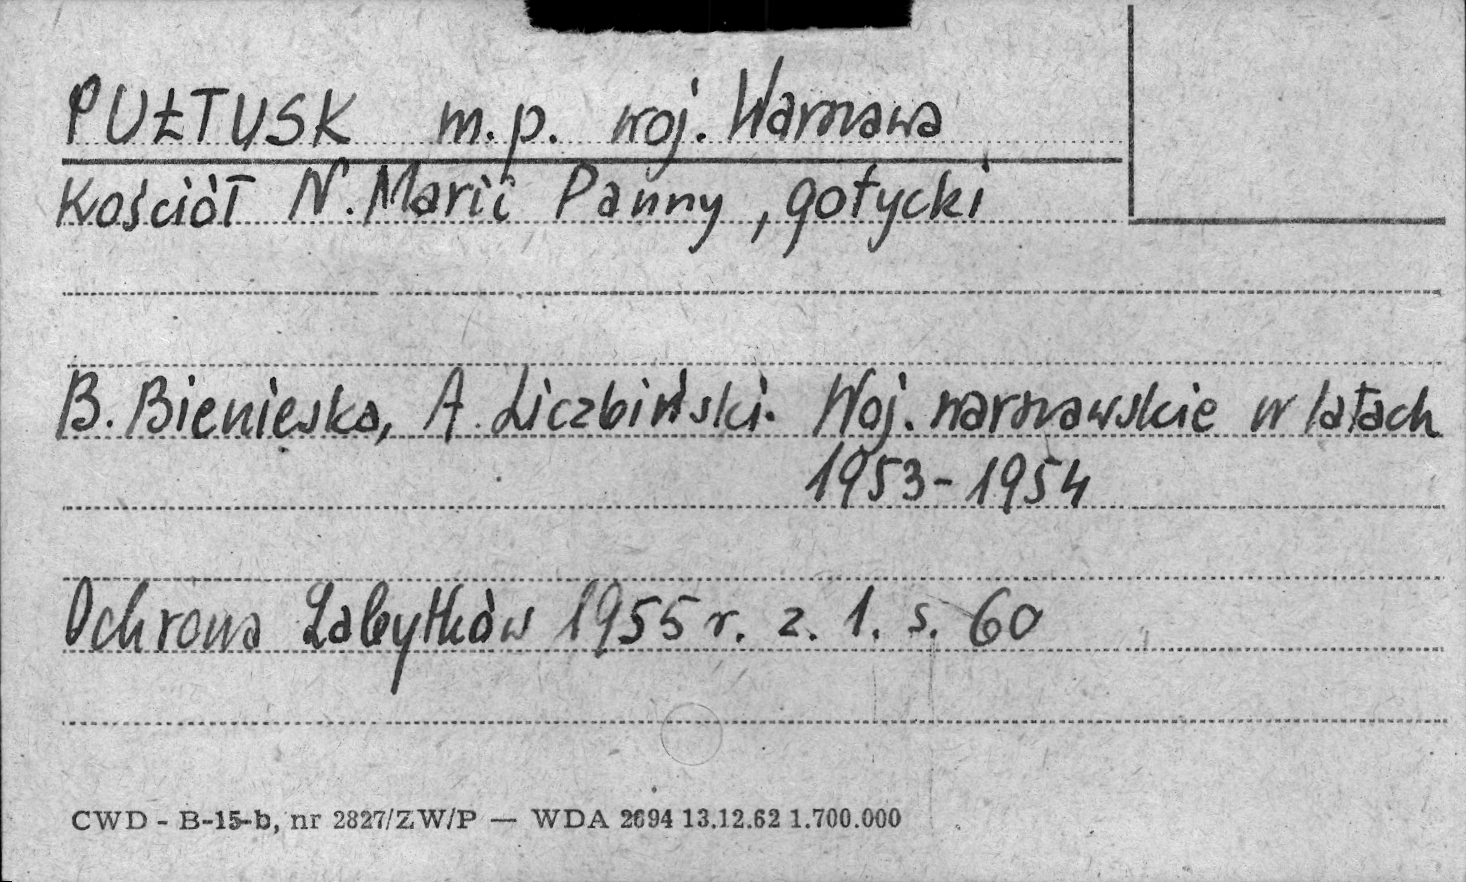 PUŁTUSK m.p. woj. Warszawa
Kościół N. Marii Panny, gotycki
B. Bienieska, A. Liczbiński. Woj. warszawskie w latach
1953-1954
Ochrona Zabytków 1955 r. z. 1. s. 60
CWD - B-15-b, nr 2827/ZW/P — WDA 2694 13.12.62 1.700.000